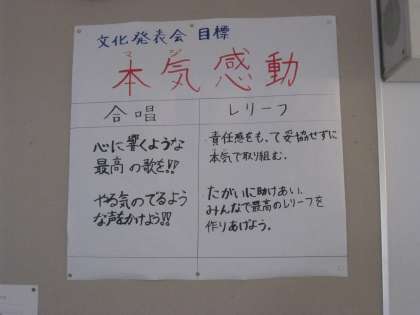 文化発表会 目標
マジ
本気感動
合唱
心に響くような
最高の歌を!!
やる気のでるよう
な声をかけよう!!
レリーフ
責任感をもって妥協せずに
本気で取り組む.
たがいに助けあい.
みんなで最高のレリーフを
作りあげよう。